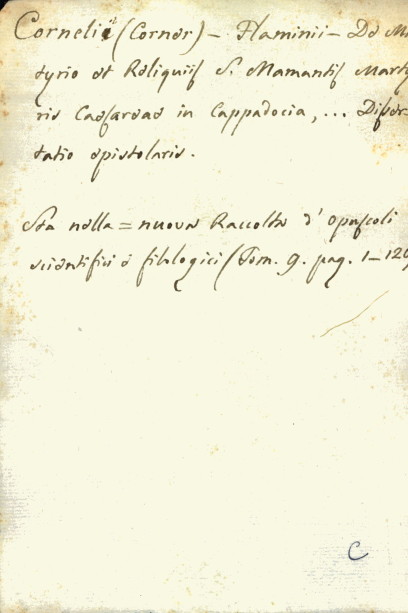 Cornelii (Corner) - Flaminii - De Mar
tyrio et Reliquiis S. Mamantis Marty
ris Caesareae in Cappadocia, ... Disser
tatio epistolaris.
Sta nella = nuova Raccolta d'opuscoli
scientifici e filologici (Tom. 9. pag. 1-129
C